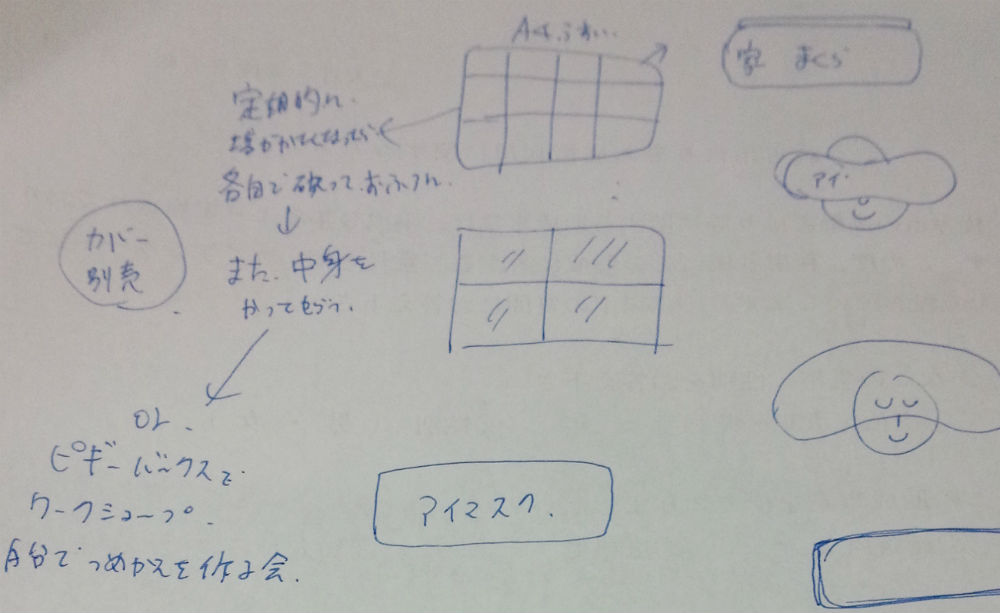 家 まくら
定期的に
各自で破って、おふろへ
カバー
別売
また、中身を
かってもらう。
アイ
or
ピギーバックスで
ワークショップ。
自分でつめかえを作る会.
アイマスク.